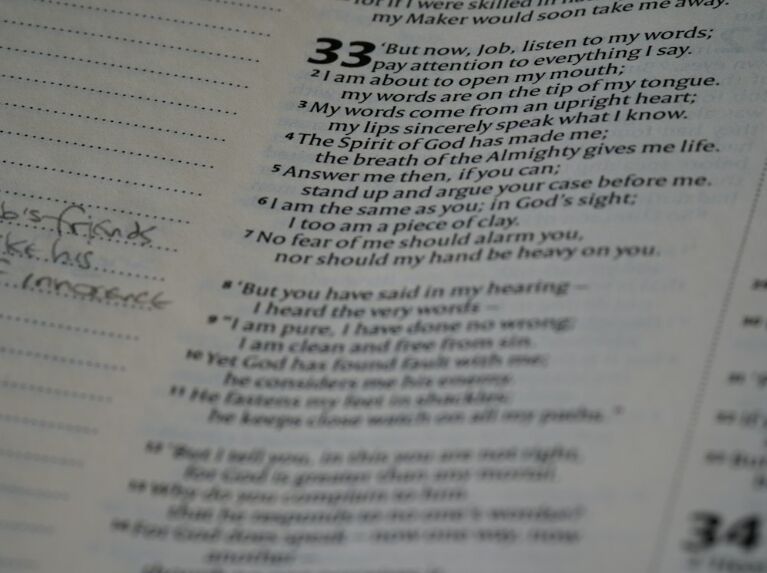 for if I were skilled in
my Maker would soon take me away.
33 'But now, Job, listen to my words;
pay attention to everything I say.
2 I am about to open my mouth;
my words are on the tip of my tongue.
3 My words come from an upright heart;
my lips sincerely speak what I know.
4 The Spirit of God has made me;
the breath of the Almighty gives me life.
5 Answer me then, if you can;
stand up and argue your case before me.
6 I am the same as you in God's sight;
I too am a piece of clay.
7 No fear of me should alarm you,
nor should my hand be heavy on you.
8 'But you have said in my hearing –
I heard the very words –
9 "I am pure, I have done no wrong;
I am clean and free from sin.
10 Yet God has found fault with me;
he considers me his enemy.
11 He fastens my feet in shackles;
he keeps close watch on all my paths."
12 'But I tell you, in this you are not right,
for God is greater than any mortal.
13 Why do you complain to him
that he responds to no one's words?
14 For God does speak – now one way, now
another –
friends
his
innocence
34